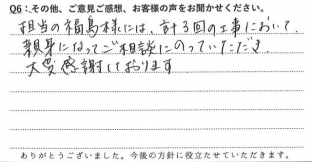 Q6：その他、ご意見ご感想、お客様の声をお聞かせください。
担当の福島様には、計3回の工事において、
親身になってご相談にのっていただき、
大変感謝しております
ありがとうございました。今後の方針に役立たせていただきます。